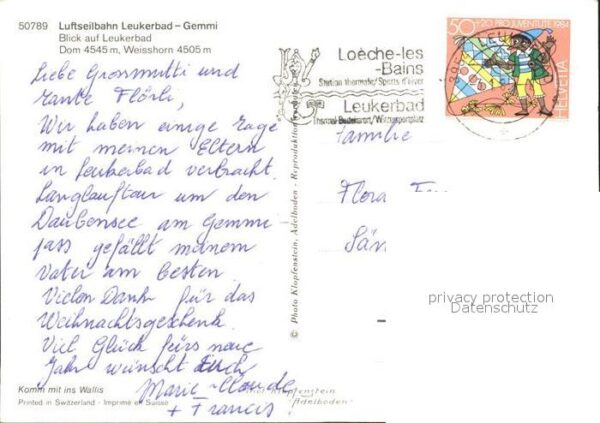 50789 Luftseilbahn Leukerbad – Gemmi
Blick auf Leukerbad
Dom 4545 m, Weisshorn 4505 m
Liebe Grossmutti und
Tante Flörli,
Wir haben einige Tage
mit meinen Eltern
in Leukerbad verbracht.
Langlauftour um den
Daubensee am Gemmi
pass gefällt meinem
Vater am besten.
Vielen Dank für das
Weihnachtsgeschenk.
Viel Glück fürs neue
Jahr wünscht Euch
Marie-Claude
+ Francis
Komm mit ins Wallis
Printed in Switzerland - Imprimé en Suisse
© Photo Klopfenstein, Adelboden - Reproduktion
Klopfenstein
Adelboden
Loèche-les
-Bains
Station thermale/Sports d'hiver
Leukerbad
Thermal-Badekurort/Wintersportplatz
50+20 PRO JUVENTUTE 1984
HELVETIA
Familie
Flora
privacy protection
Datenschutz